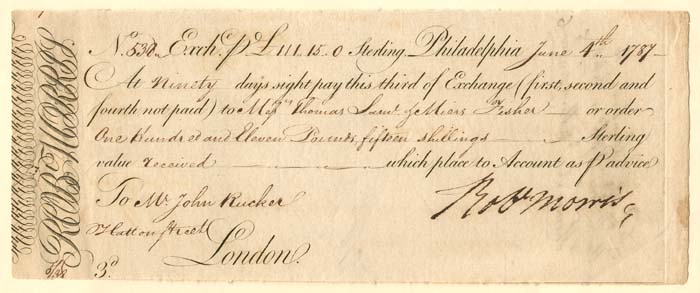 No. 538 Exch. pr £111.15.0 Sterling. Philadelphia June 4th 1787
At Ninety days sight pay this third of Exchange (first, second and
fourth not paid) to Messrs Thomas Saml. & Miers Fisher or order
One Hundred and Eleven Pounds, fifteen shillings Sterling
value received which place to Account as pr advice
To Mr. John Rucker
Hatton Street
London.
3d.
Robt Morris
ROB MORRIS